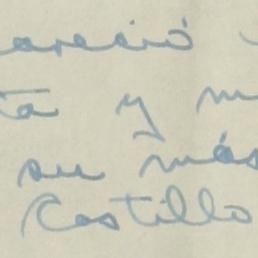 areció
ta y m
su más
Castillo